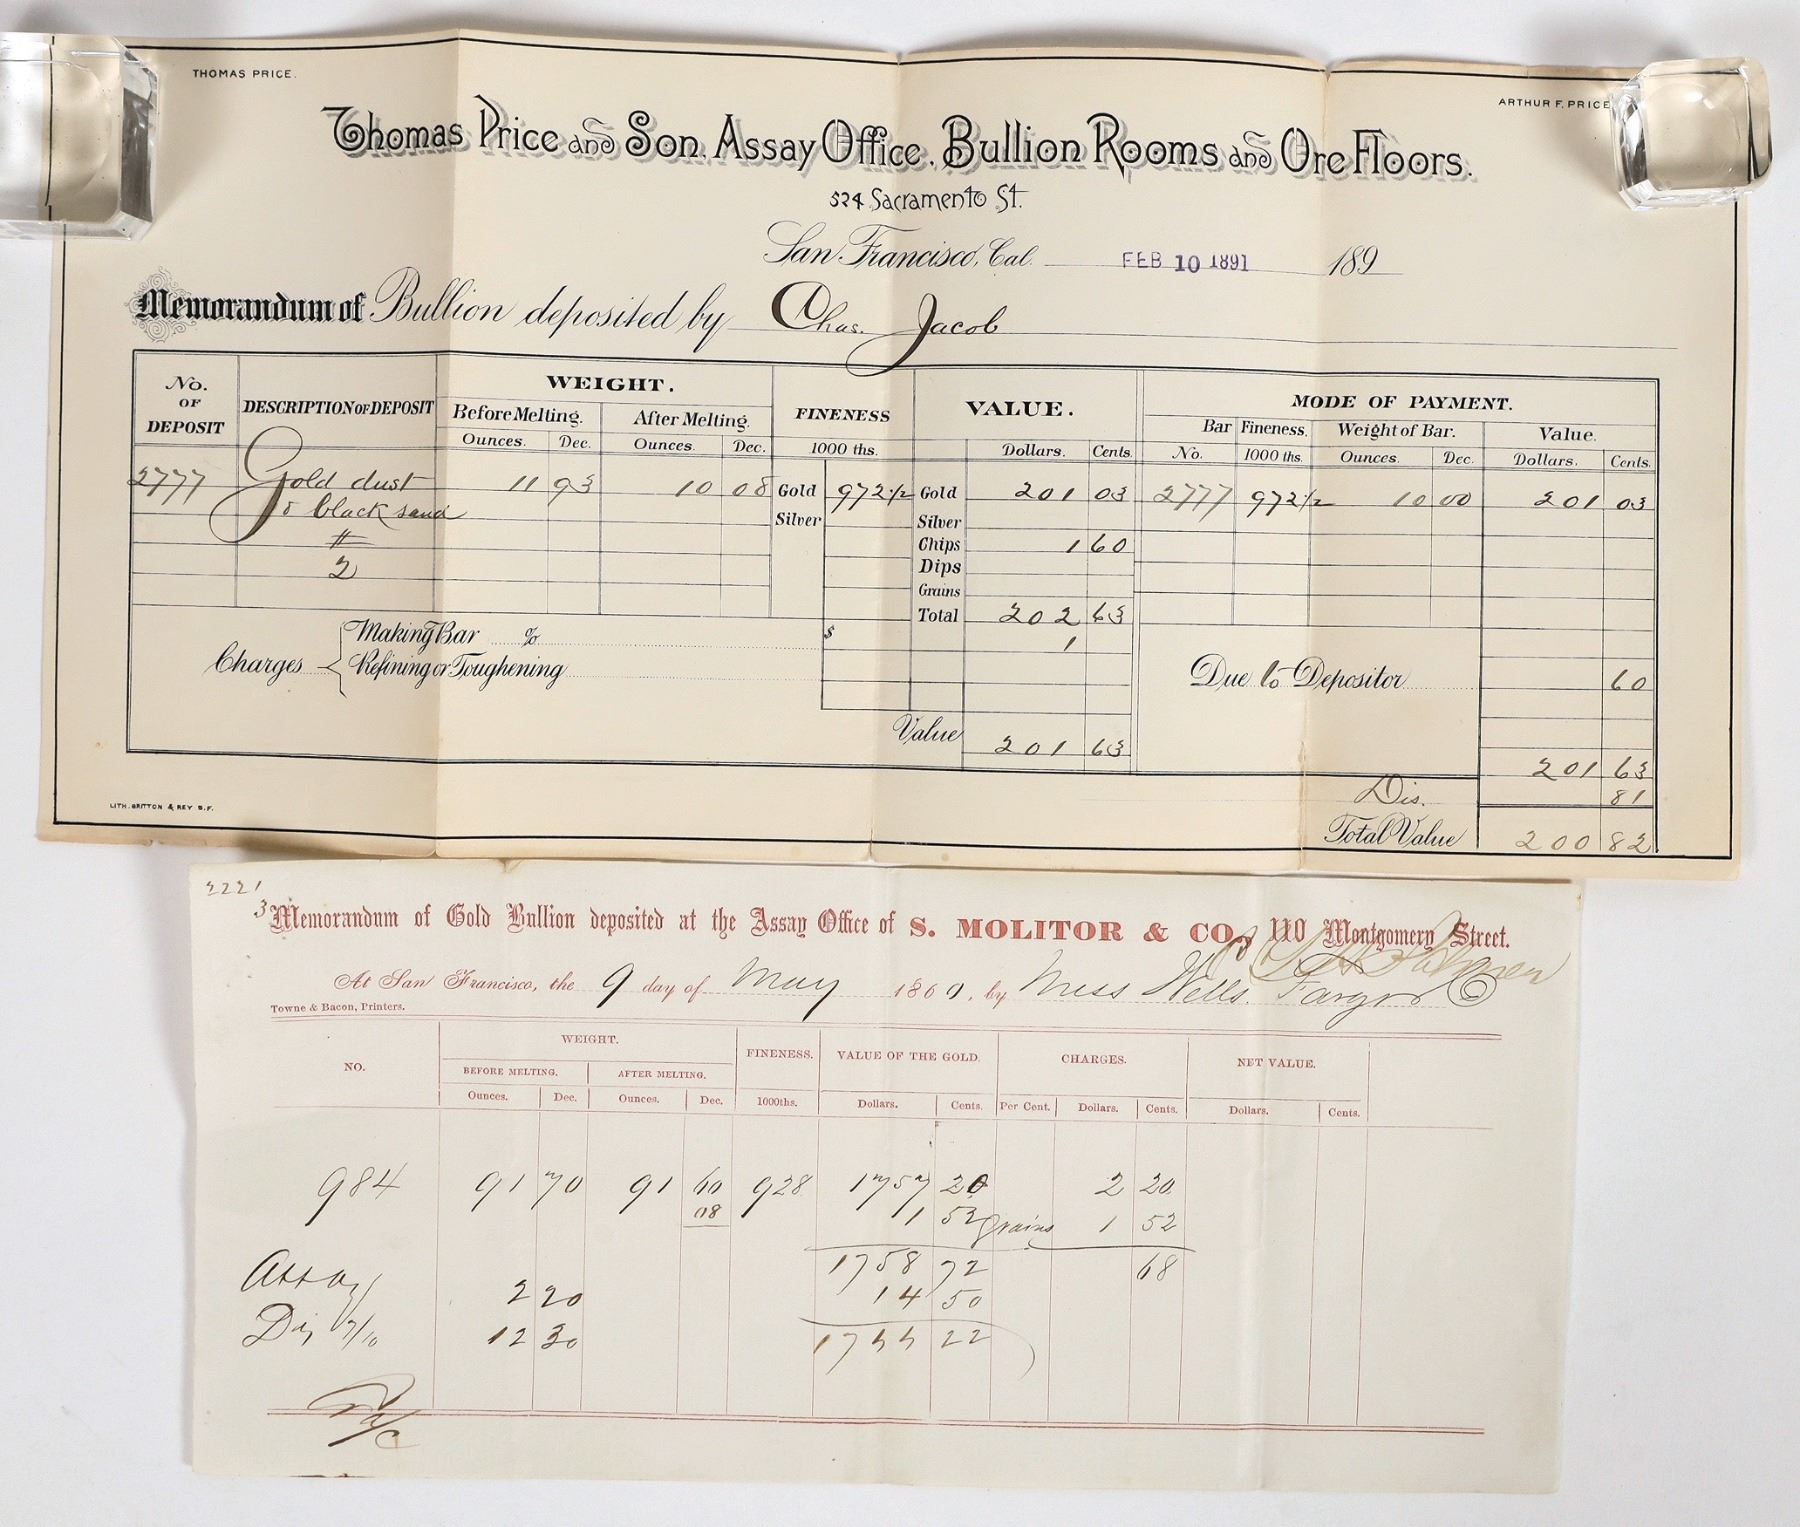 THOMAS PRICE.
ARTHUR F. PRICE
Thomas Price and Son. Assay Office. Bullion Rooms and Ore Floors.
524 Sacramento St.
San Francisco, Cal. FEB 10 1891 189
Memorandum of Bullion deposited by Chas. Jacob
No. OF DEPOSIT DESCRIPTION OF DEPOSIT WEIGHT. FINENESS VALUE. MODE OF PAYMENT.
Before Melting. After Melting. Bar Fineness. Weight of Bar. Value.
Ounces. Dec. Ounces. Dec. 1000 ths. Dollars. Cents. No. 1000 ths. Ounces. Dec. Dollars. Cents.
2777 Gold dust 11 93 10 08 Gold 972 1/2 Gold 201 03 2777 972 1/2 10 00 201 03
& black sand Silver Silver
# Chips 1 60
2 Dips
Grains
Total 202 63
Charges Making Bar % $ 1
Refining or Toughening Due to Depositor 60
Value 201 63
201 63
Dis. 81
Total Value 200 82
LITH. BRITTON & REY S.F.
2221
3
Memorandum of Gold Bullion deposited at the Assay Office of S. MOLITOR & CO., 110 Montgomery Street.
At San Francisco, the 9 day of May 1860, by Mess Wells. Fargo & Co
Towne & Bacon, Printers.
NO. WEIGHT. FINENESS. VALUE OF THE GOLD. CHARGES. NET VALUE.
BEFORE MELTING. AFTER MELTING.
Ounces. Dec. Ounces. Dec. 1000ths. Dollars. Cents. Per Cent. Dollars. Cents. Dollars. Cents.
984 91 70 91 60 928 1757 20 2 20
08 1 52 grains 1 52
1758 72 68
Assay 2 20 14 50
Dis 7/10 12 30 1744 22